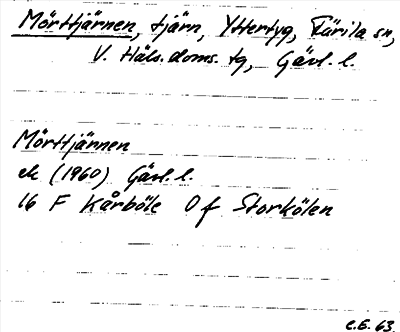 Mörttjärnen, tjärn, Yttertyg, Färila sn,
V. Häls. doms. tg, Gävl. l.
Mörttjärnen
ek (1960) Gävl. l.
16 F Kårböle 0 f Storkölen
C.E. 63